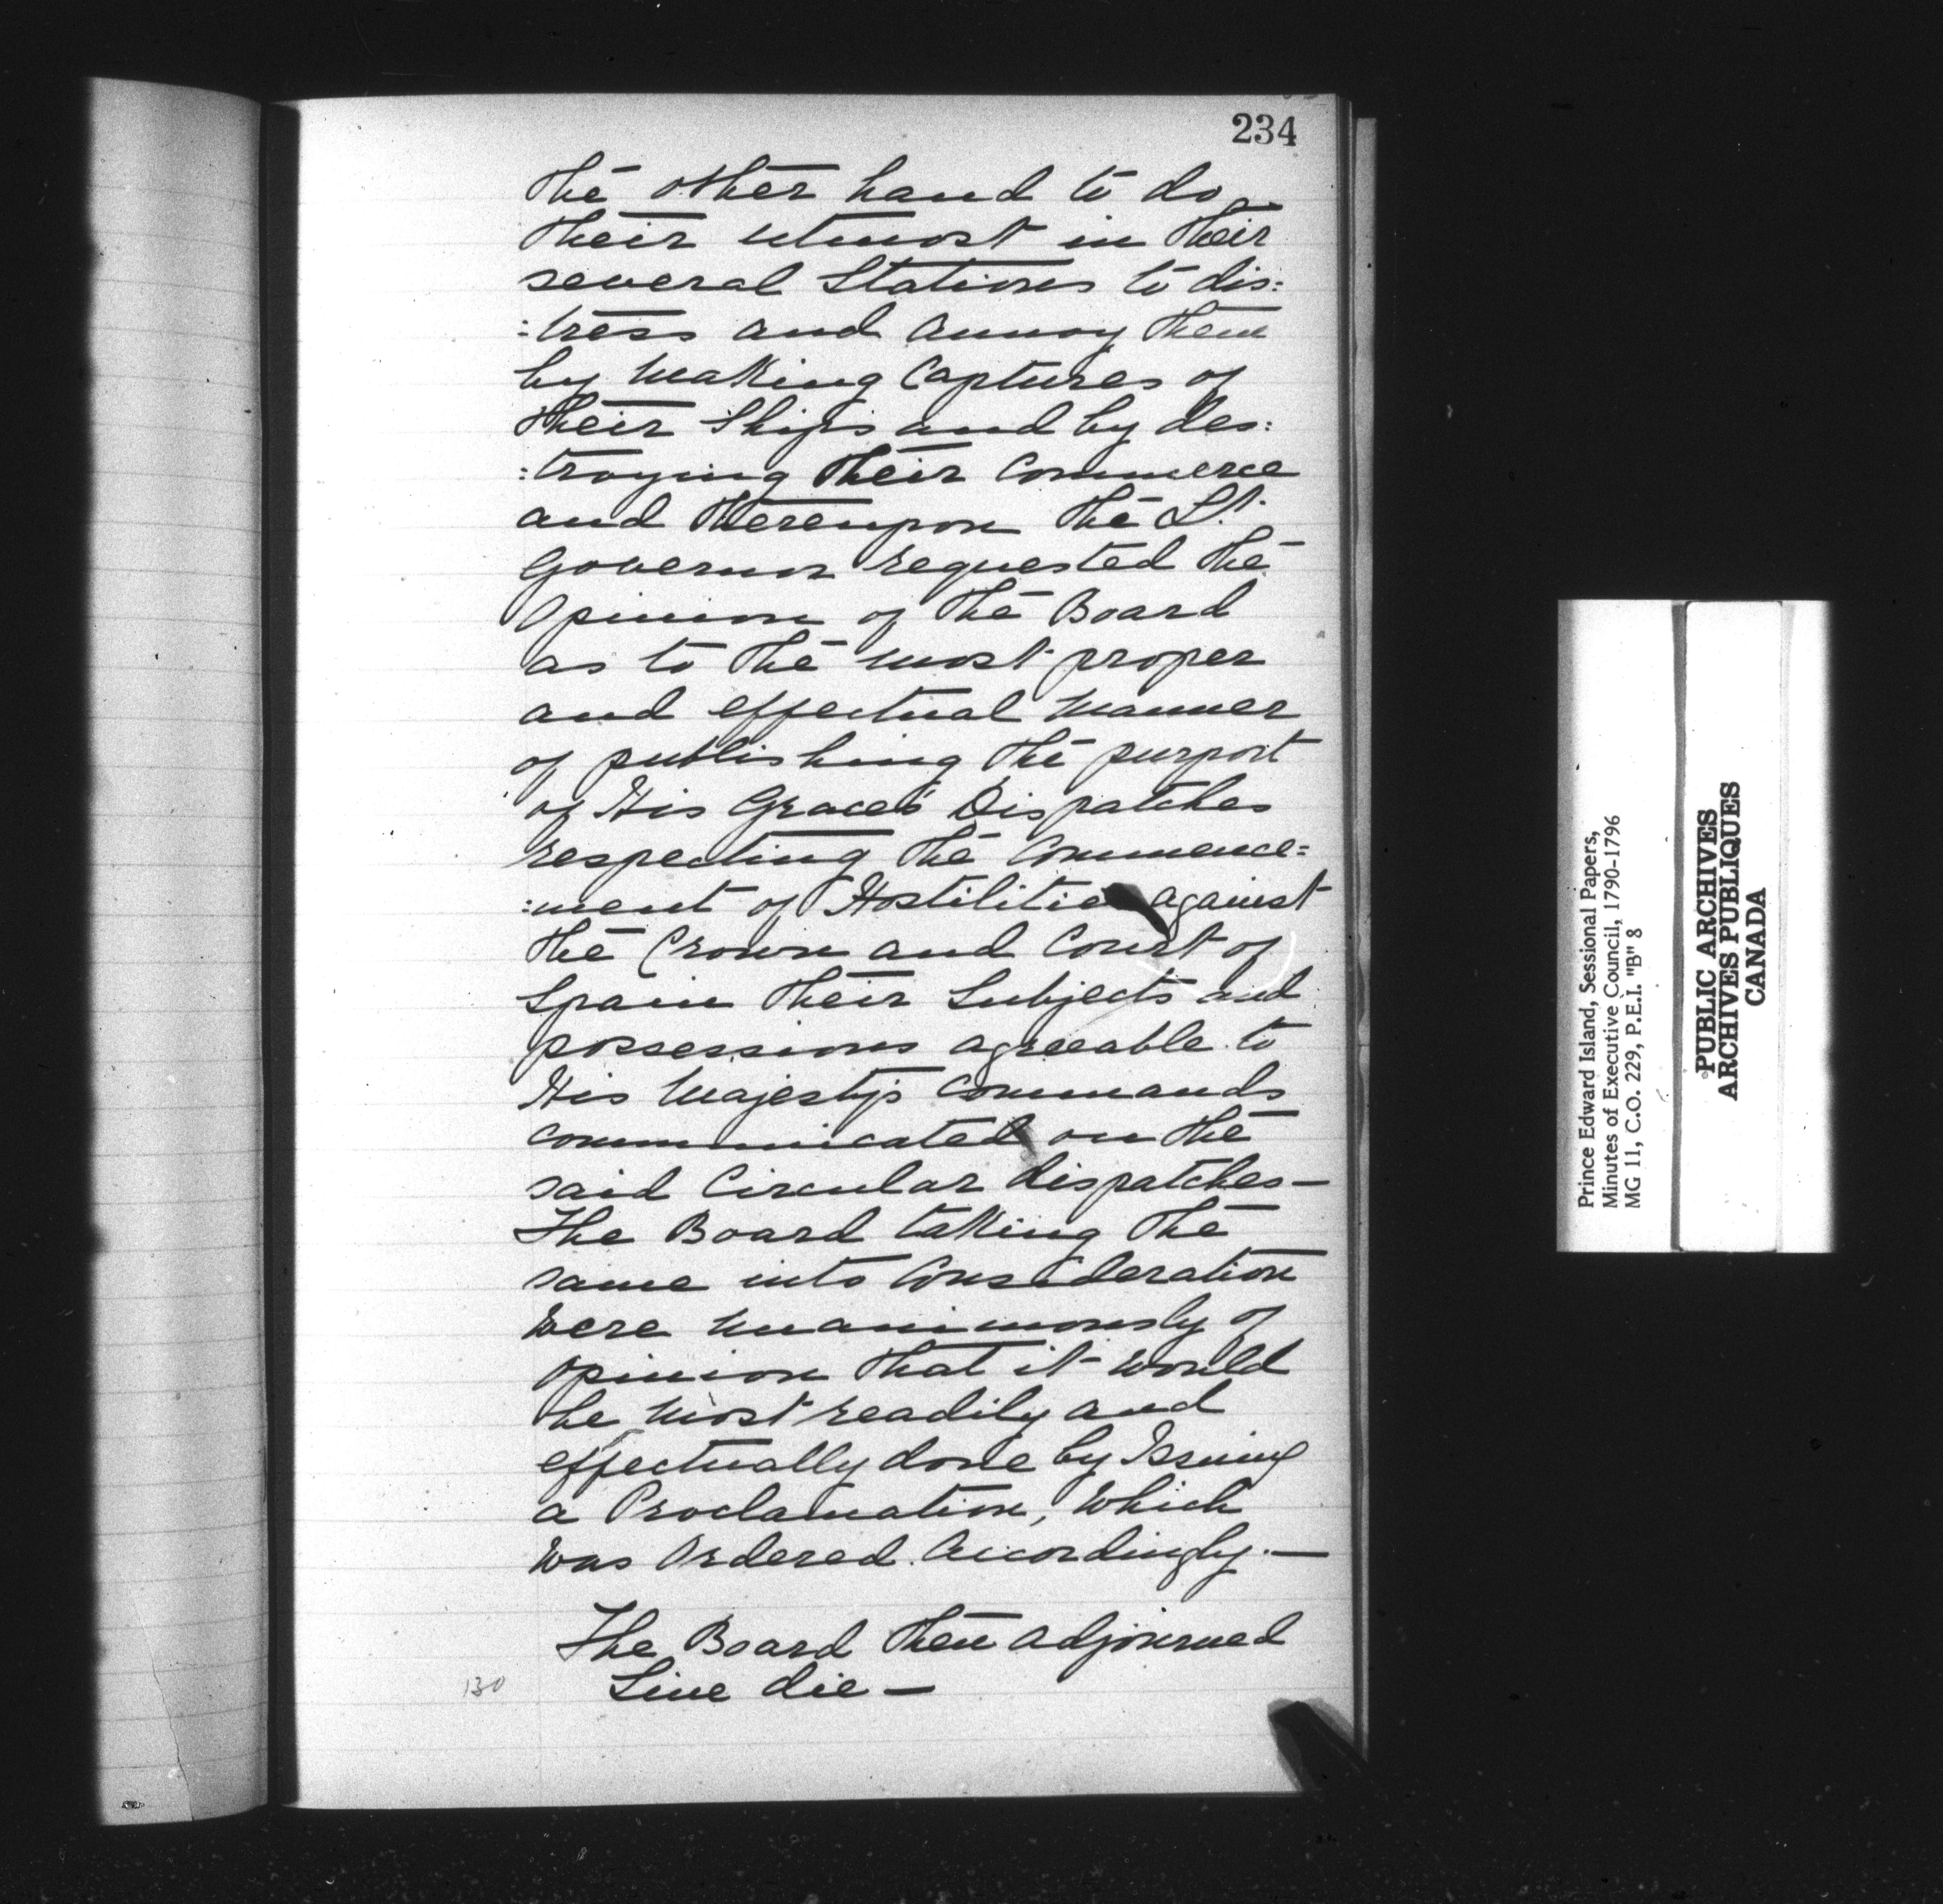 234
the other hand to do
their utmost in their
several Stations to dis:
:tress and annoy them
by making Captures of
their Ships and by des:
:troying their Commerce
and thereupon the Lt.
Governor requested the
Opinion of the Board
as to the most proper
and effectual manner
of publishing the purport
of His Grace's Dispatches
respecting the Commence:
:ment of Hostilities against
the Crown and Court of
Spain their Subjects and
possessions agreeable to
His Majesty's Commands
communicated on the
said Circular dispatches—
The Board taking the
same into Consideration
were unanimously of
opinion that it would
be most readily and
effectually done by Issuing
a Proclamation, which
was Ordered Accordingly.—
The Board then adjourned
Sine die —
130
Prince Edward Island, Sessional Papers,
Minutes of Executive Council, 1790-1796
MG 11, C.O. 229, P.E.I. "B" 8
PUBLIC ARCHIVES
ARCHIVES PUBLIQUES
CANADA